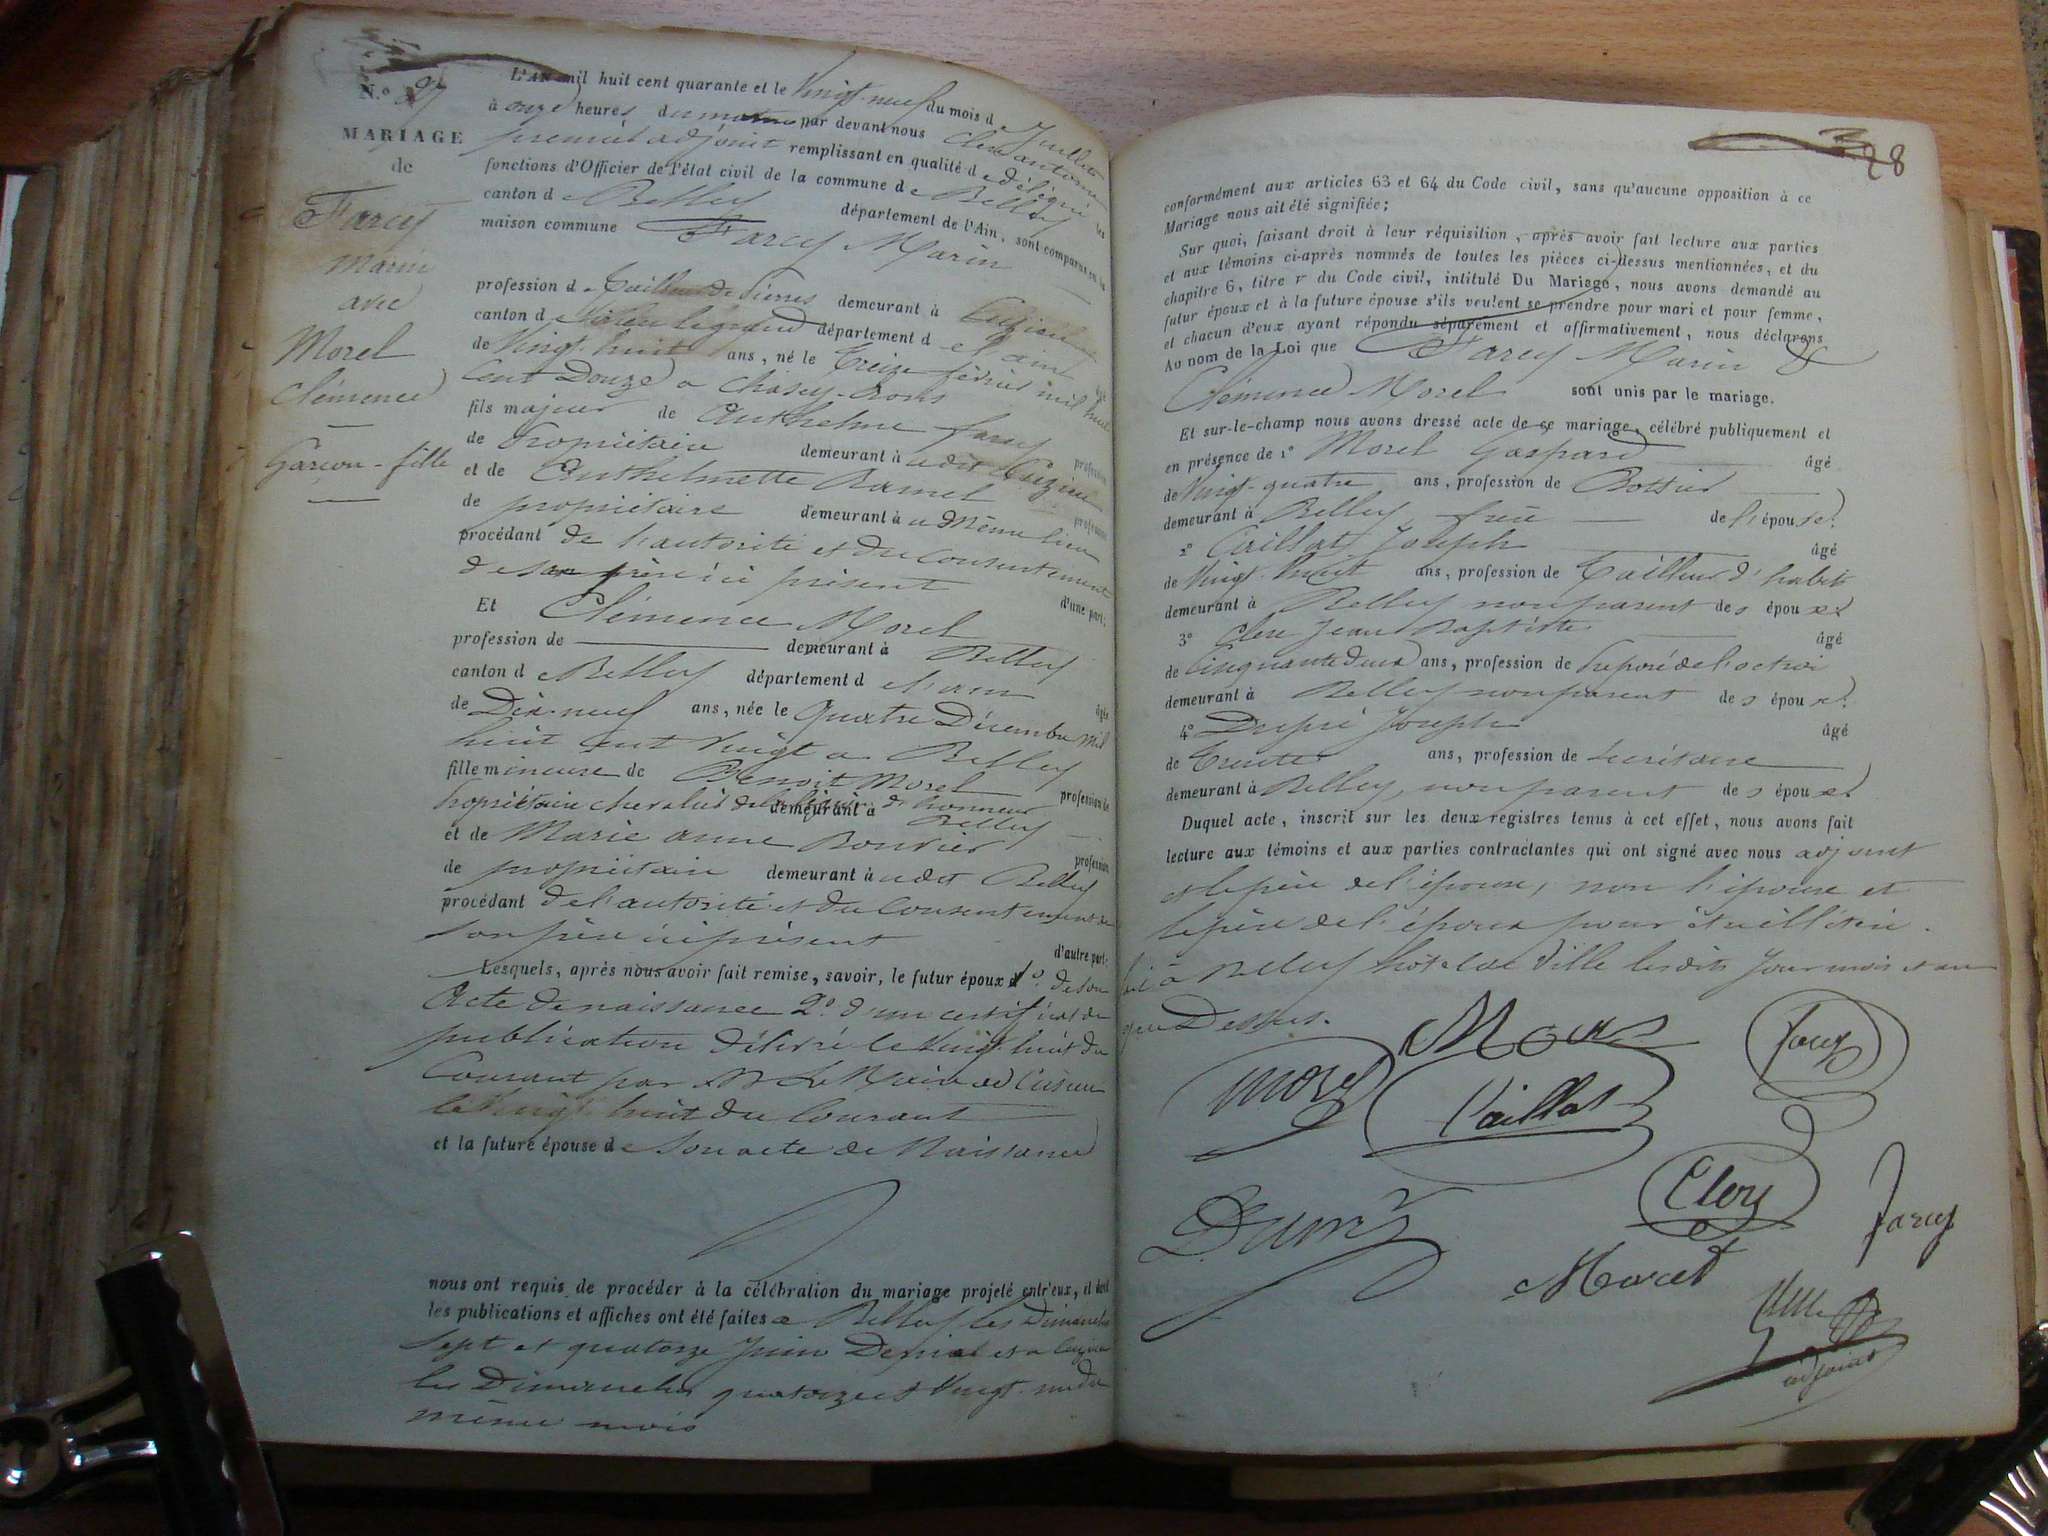 N.º 27
MARIAGE
de
Farcy
Marin
avec
Morel
Clémence
Garçon - fille
L'AN mil huit cent quarante et le Vingt-neuf du mois d Juillet
à onze heures du matin par devant nous Clerc antoine
premier adjoint remplissant en qualité de délégué les
fonctions d'Officier de l'état civil de la commune de Belley
canton de Belley département de l'Ain, sont comparus en la
maison commune Farcy Marin
profession de Tailleur de Pierres demeurant à
canton de Virieu legrand département de l'ain âgé
de Vingt-huit ans, né le Treize février mil huit
Cent Douze a Chasey-Bons
fils majeur de Anthelme farcy profession
de Propriétaire demeurant à udit Cuzieu
et de Anthelmette Ramel profession
de propriétaire demeurant à u même lieu
procédant de l'autorité et du Consentement
de son père ici présent d'une part;
Et Clémence Morel
profession de demeurant à Belley
canton de Belley département de l'ain âgée
de Dix-neuf ans, née le Quatre Décembre mil
huit cent vingt a Belley
fille mineure de Benoit Morel profession de
Propriétaire chevalier de la légion d'honneur demeurant à Belley
et de Marie anne Bouvier profession
de propriétaire demeurant à udit Belley
procédant de l'autorité et du Consentement de
son père ici présent d'autre part;
Lesquels, après nous avoir fait remise, savoir, le futur époux 1º. de son
Acte de naissance 2º. d'un certificat de
publication délivré le Vingt-huit du
Courant par Mr Le Maire de Cuzieu
le Vingt-huit du Courant
et la future épouse de Son acte de Naissance
nous ont requis de procéder à la célébration du mariage projeté entr'eux, et dont
les publications et affiches ont été faites a Belley les Dimanches
sept et quatorze Juin Dernier et a Cuzieu
les Dimanches quatorze et Vingt-un du
même mois
28
conformément aux articles 63 et 64 du Code civil, sans qu'aucune opposition à ce
Mariage nous ait été signifiée;
Sur quoi, faisant droit à leur réquisition, après avoir fait lecture aux parties
et aux témoins ci-après nommés de toutes les pièces ci-dessus mentionnées, et du
chapitre 6, titre V du Code civil, intitulé Du Mariage, nous avons demandé au
futur époux et à la future épouse s'ils veulent se prendre pour mari et pour femme,
et chacun d'eux ayant répondu séparément et affirmativement, nous déclarons
Au nom de la Loi que Farcy Marin &
Clémence Morel sont unis par le mariage.
Et sur-le-champ nous avons dressé acte de ce mariage, célébré publiquement et
en présence de 1º Morel Gaspard âgé
de Vingt-quatre ans, profession de Bottier
demeurant à Belley frère de l'épouse.
2º Caillat Joseph âgé
de Vingt-huit ans, profession de Tailleur d'habits
demeurant à Belley non parent des époux
3º Clerc Jean Baptiste âgé
de Cinquante deux ans, profession de Préposé de l'octroi
demeurant à Belley non parent des époux.
4º Dupré Joseph âgé
de Trente ans, profession de Secrétaire
demeurant à Belley, non parent des époux
Duquel acte, inscrit sur les deux registres tenus à cet effet, nous avons fait
lecture aux témoins et aux parties contractantes qui ont signé avec nous adjoint
et le père de l'épouse, non l'épouse et
le père de l'époux pour être illitérés.
fait à Belley hotel de Ville lesdits Jour mois et an
que Dessus.
Morel
Farcy
Caillat
Clerc
Farcy
adjoint